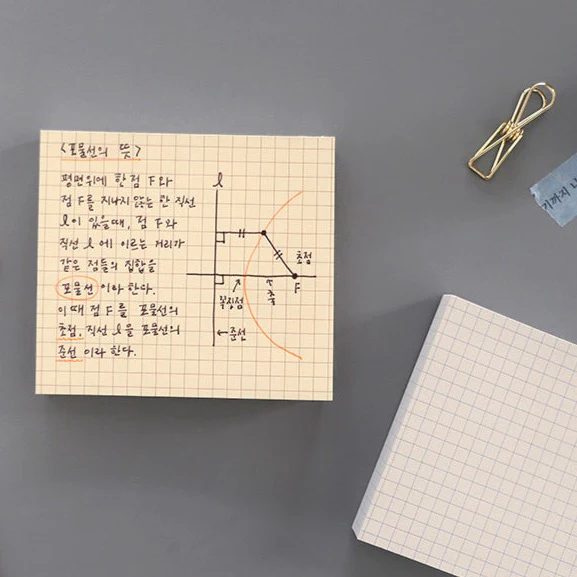 <포물선의 뜻>
평면위에 한 점 F와
점 F를 지나지 않는 한 직선
l이 있을때, 점 F와
직선 l에 이르는 거리가
같은 점들의 집합을
포물선 이라 한다.
이 때 점 F를 포물선의
초점, 직선 l을 포물선의
준선 이라 한다.
l
초점
F
꼭짓점
축
←준선